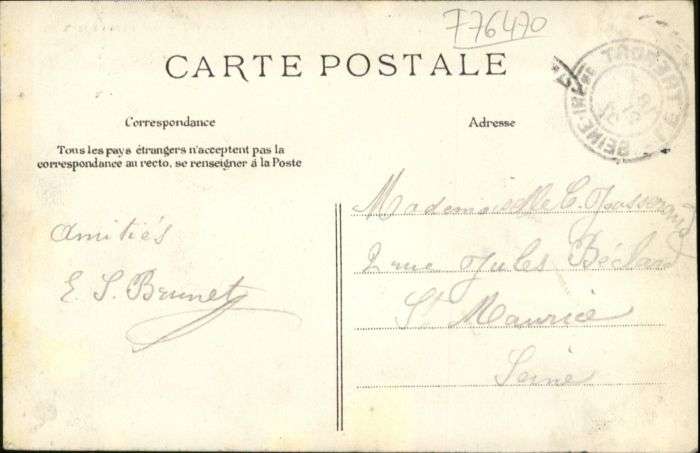 F76470
CARTE POSTALE
Correspondance
Adresse
Tous les pays étrangers n'acceptent pas la
correspondance au recto, se renseigner à la Poste
Amitiés
E. S. Brunet
Mademoiselle C. Jusserand
2 rue Jules Béclard
St Maurice
Seine
LE TREPORT
SEINE-INFRE